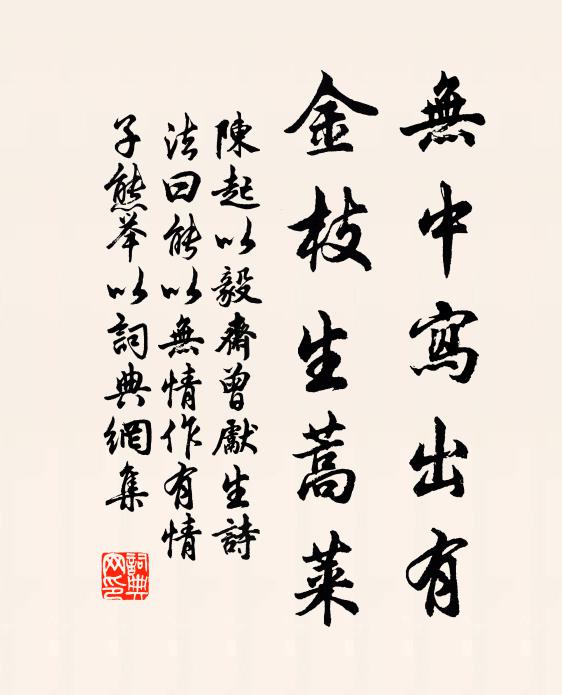 無中寫出有
金枝生蒿菜
陳起以毅齋曾獻生詩
法曰能以無情作有情
子熊举以詞典網集
詞典
网印